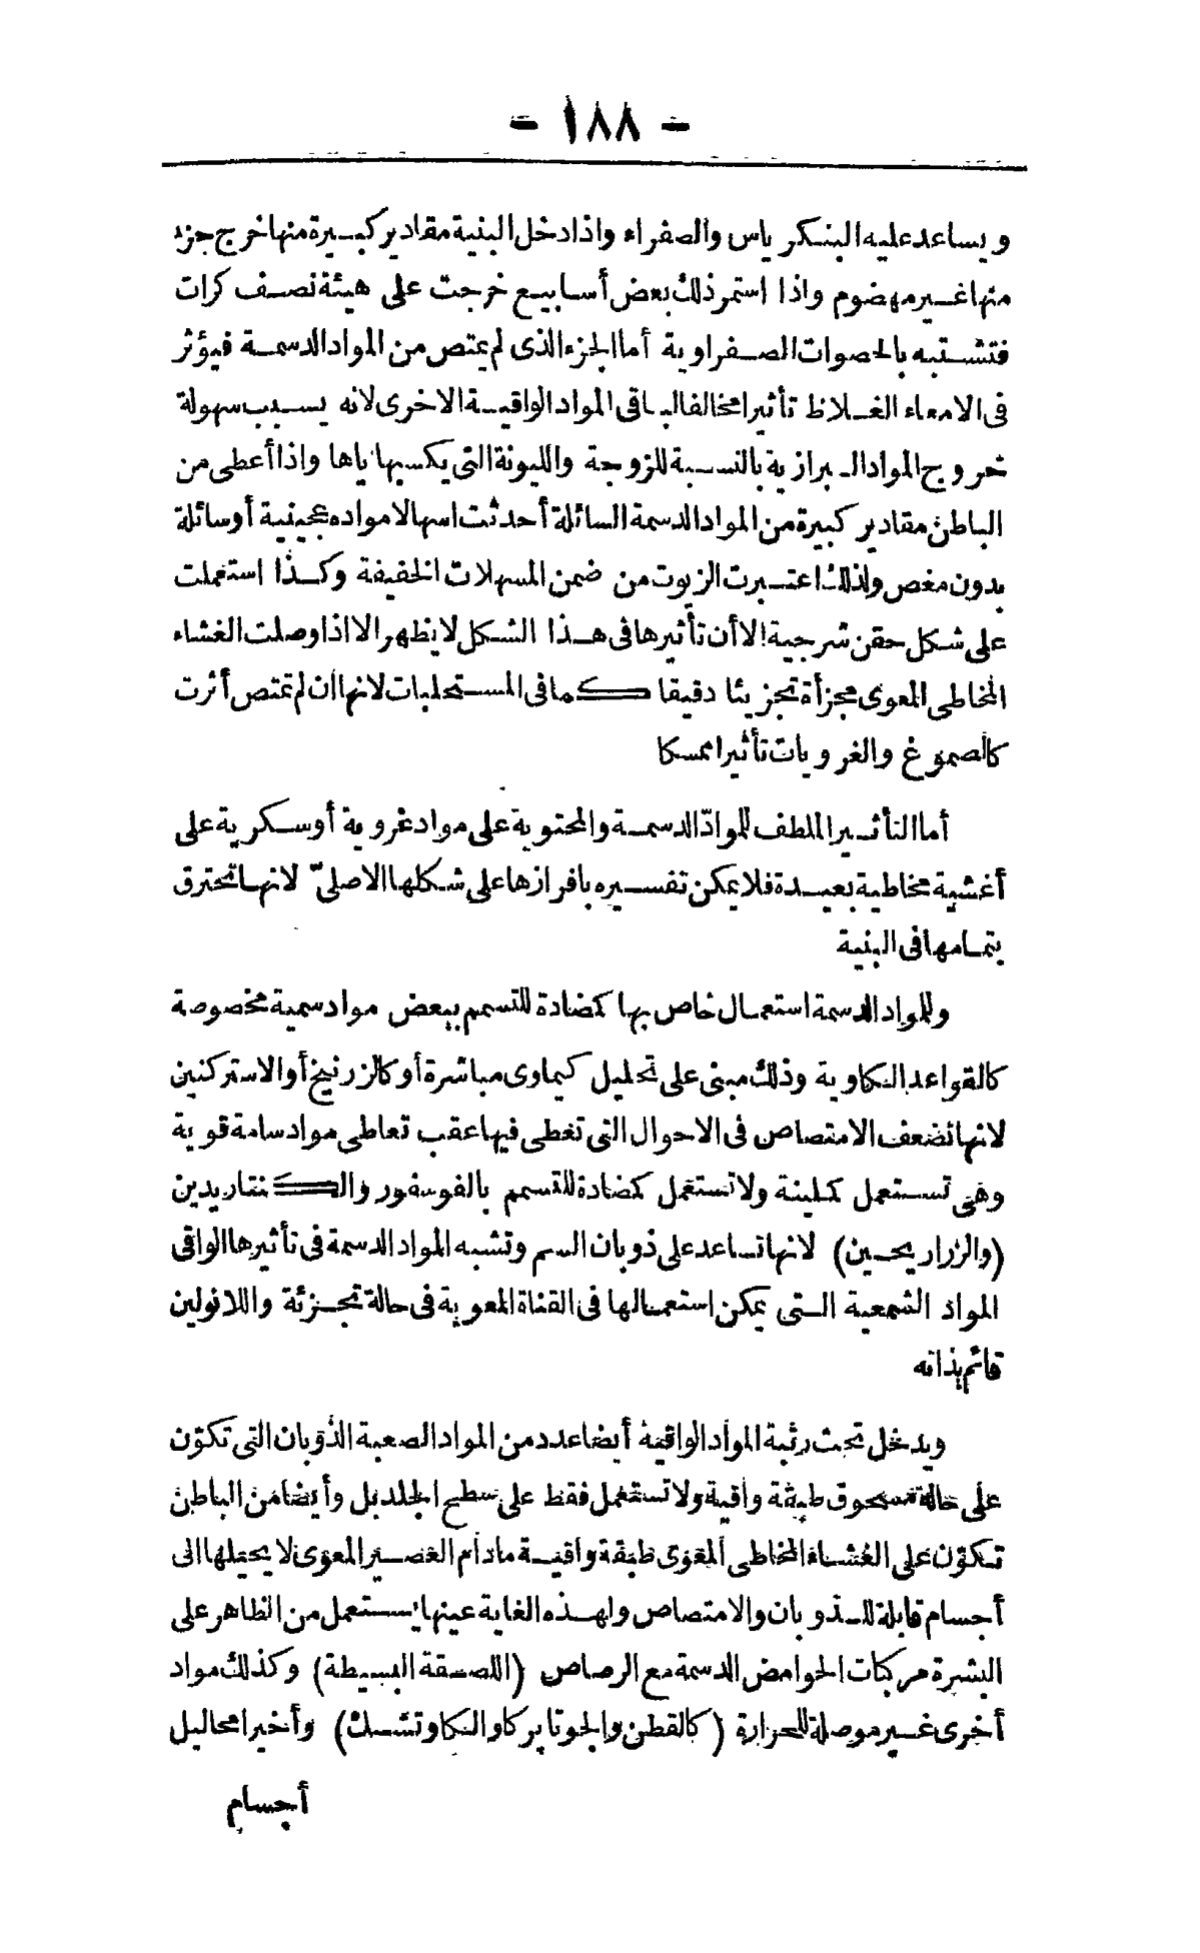 - ١٨٨ -
ويساعد عليه البنكرياس والصفراء واذا دخل البنية مقادير كبيرة منها خرج جزء
منها غير مهضوم واذا استمر ذلك بعض أسابيع خرجت على هيئة نصف كرات
فتشتبه بالحصوات الصفراوية أما الجزء الذى لم يمتص من المواد الدسمة فيؤثر
فى الامعاء الغلاظ تأثيرا مخالفا لباقى المواد الواقية الاخرى لانه يسبب سهولة
خروج المواد البرازية بالنسبة للزوجة والليونة التى يكسبها اياها واذا أعطى من
الباطن مقادير كبيرة من المواد الدسمة السائلة أحدثت اسهالا مواده عجينية أوسائلة
بدون مغص ولذلك اعتبرت الزيوت من ضمن المسهلات الخفيفة وكذا استعملت
على شكل حقن شرجية الا أن تأثيرها فى هذا الشكل لا يظهر الا اذا وصلت الغشاء
المخاطى المعوى مجزأة تجزيئا دقيقا كما فى المستحلبات لانها ان لم تمتص أثرت
كالصموغ والغرويات تأثيرا ممسكا
أما التأثير الملطف للموادّ الدسمة والمحتوية على مواد غروية أوسكرية على
أغشية مخاطية بعيدة فلا يمكن تفسيره بافرازها على شكلها الاصلىّ لانها تحترق
بتمامها فى البنية
وللمواد الدسمة استعمال خاص بها كضادة للتسمم ببعض مواد سمية مخصوصة
كالقواعد الكاوية وذلك مبنى على تحليل كيماوى مباشرة أوكالزرنيخ أوالاستركنين
لانها تضعف الامتصاص فى الاحوال التى تعطى فيها عقب تعاطى مواد سامة قوية
وهى تستعمل كملينة ولا تستعمل كضادة للتسمم بالفوسفور والكنتاريدين
(والزراريحين) لانها تساعد على ذوبان السم وتشبه المواد الدسمة فى تأثيرها الواقى
المواد الشمعية التى يمكن استعمالها فى القناة المعوية فى حالة تجزئة واللانولين
قائم بذاته
ويدخل تحت رتبة المواد الواقية أيضا عدد من المواد الصعبة الذوبان التى تكوّن
على حالة مسحوق طبقة واقية ولا تستعمل فقط على سطح الجلد بل وأيضا من الباطن
تكوّن على الغشاء المخاطى المعوى طبقة واقية مادام العصير المعوى لا يحيلها الى
أجسام قابلة للذوبان والامتصاص ولهذه الغاية عينها يستعمل من الظاهر على
البشرة مركبات الحوامض الدسمة مع الرصاص (اللصقة البسيطة) وكذلك مواد
أخرى غير موصلة للحرارة (كالقطن والجوتابركا والكاوتشك) وأخيرا محاليل
أجسام